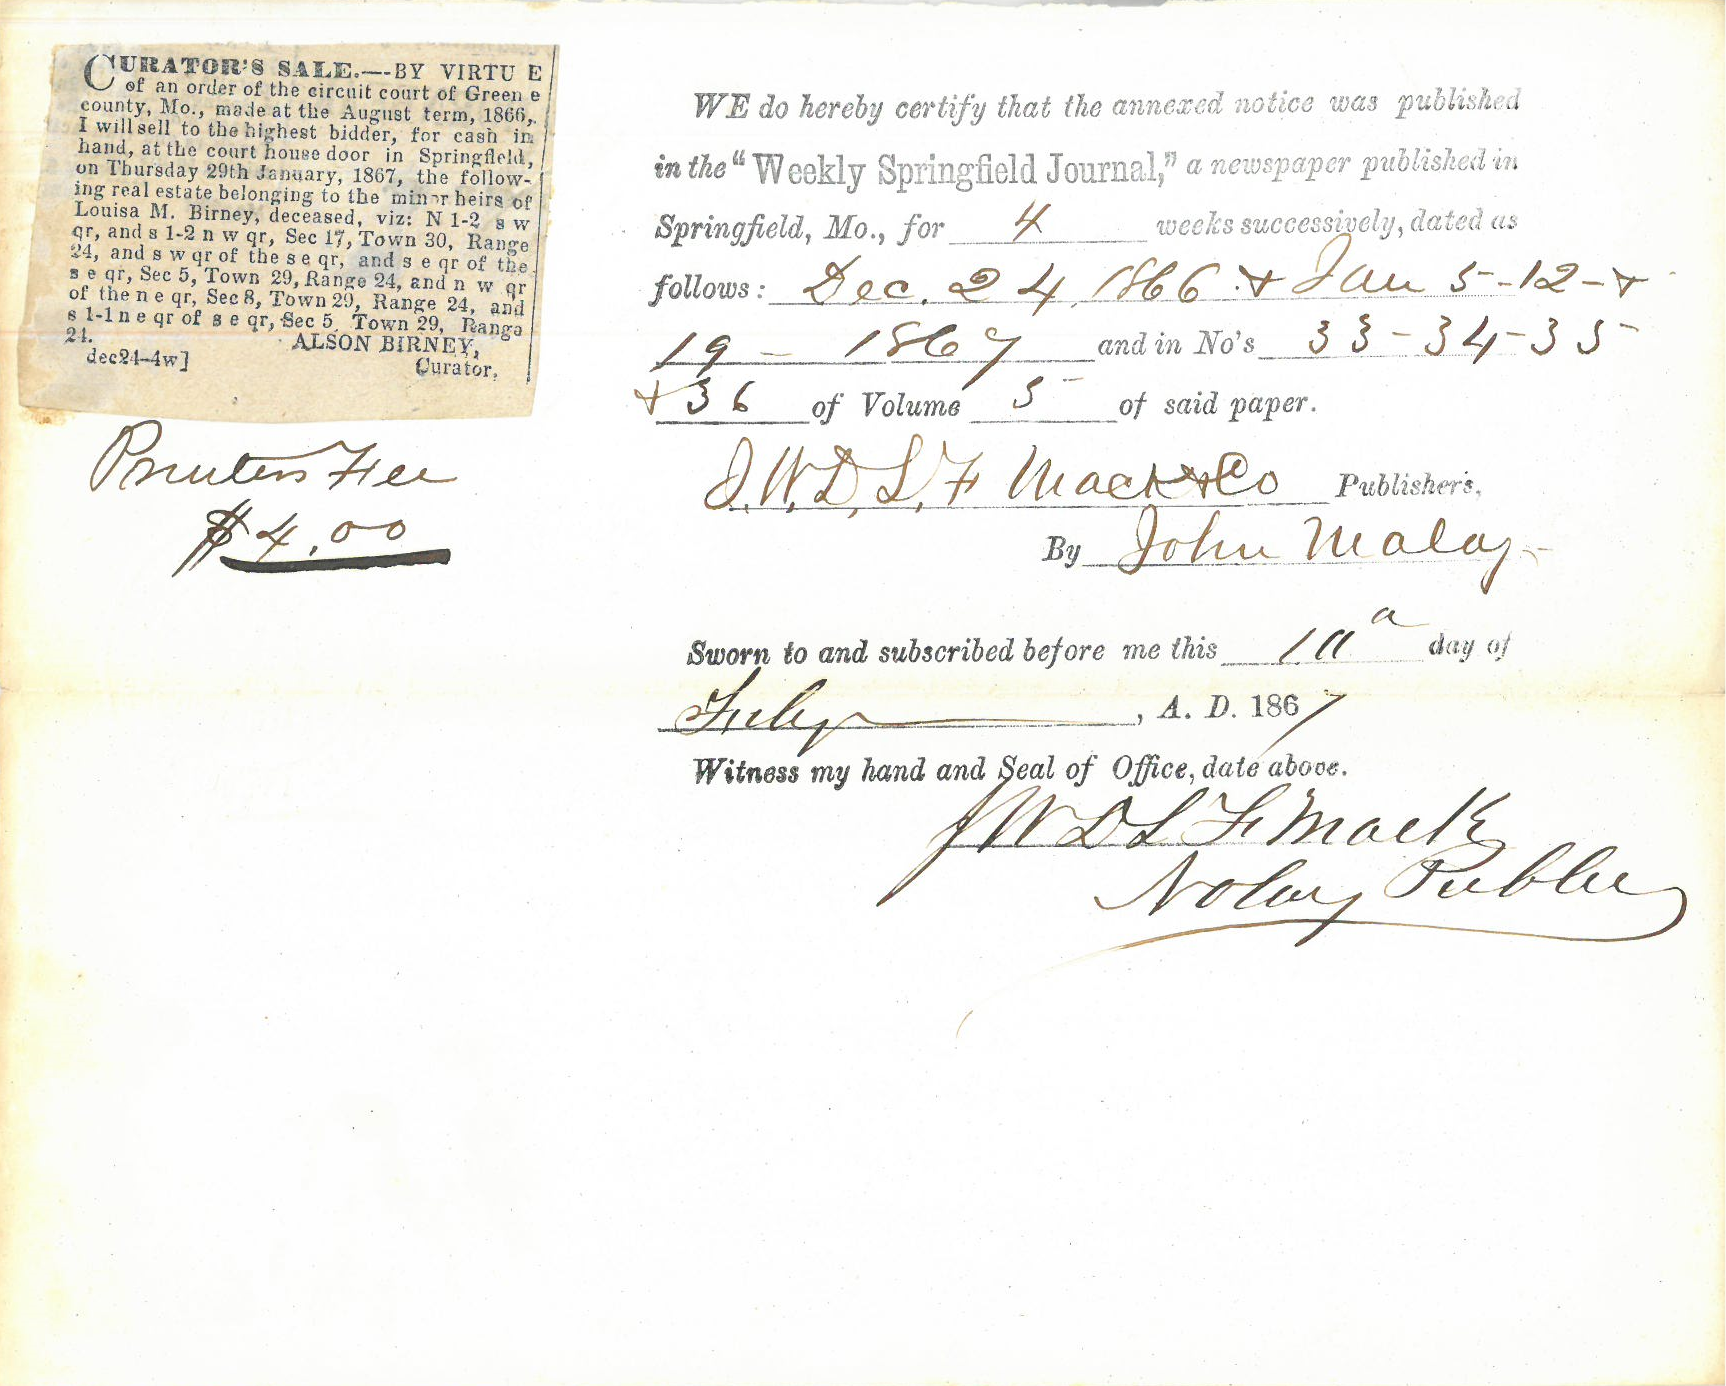 CURATOR'S SALE.—-BY VIRTU E
of an order of the circuit court of Green e
county, Mo., made at the August term, 1866,.
I will sell to the highest bidder, for cash in
hand, at the court house door in Springfield,
on Thursday 29th January, 1867, the follow-
ing real estate belonging to the minor heirs of
Louisa M. Birney, deceased, viz: N 1-2 s w
qr, and s 1-2 n w qr, Sec 17, Town 30, Range
24, and s w qr of the s e qr, and s e qr of the
s e qr, Sec 5, Town 29, Range 24, and n w qr
of the n e qr, Sec 8, Town 29, Range 24, and
s 1-1 n e qr of s e qr, Sec 5, Town 29, Range
24. ALSON BIRNEY,
dec24-4w] Curator.
Printers Fee
$4.00
WE do hereby certify that the annexed notice was published
in the "Weekly Springfield Journal," a newspaper published in
Springfield, Mo., for 4 weeks successively, dated as
follows: Dec. 24, 1866 & Jan 5-12-&
19- 1867 and in No's 33-34-35-
& 36 of Volume 5 of said paper.
J. W. D. L. F Mack & Co Publishers,
By
John
Sworn to and subscribed before me this day of
Feby, A. D. 1867
Witness my hand and Seal of Office, date above.
J W D L F Mack
Notary Public